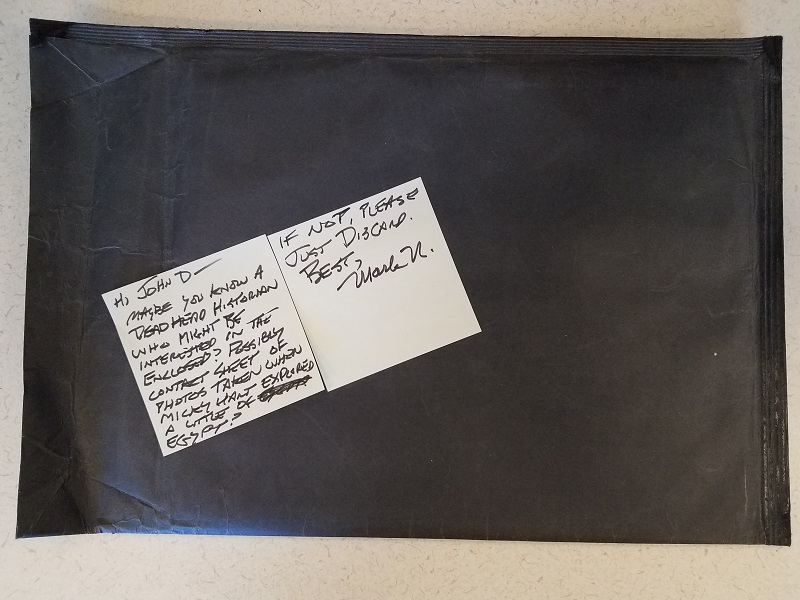 HI JOHN D—
MAYBE YOU KNOW A
DEADHEAD HISTORIAN
WHO MIGHT BE
INTERESTED IN THE
ENCLOSED? POSSIBLY
CONTACT SHEET OF
PHOTOS TAKEN WHEN
MICKY HART EXPLORED
A LITTLE OF
EGYPT?
IF NOT, PLEASE
JUST DISCARD.
BEST,
Mark N.